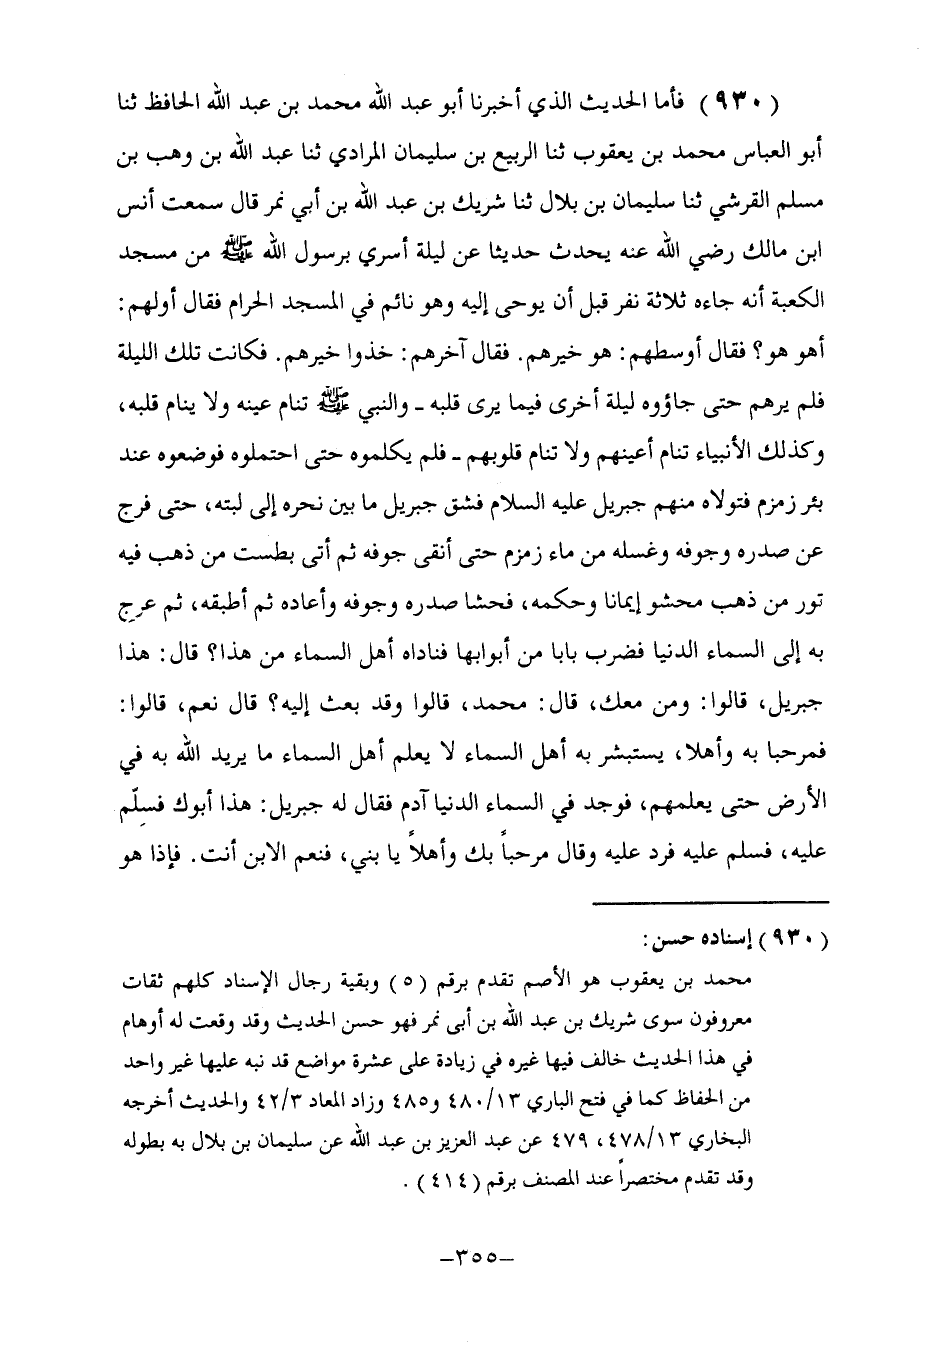 (٩٣٠) فأما الحديث الذي أخبرنا أبو عبد الله محمد بن عبد الله الحافظ ثنا
أبو العباس محمد بن يعقوب ثنا الربيع بن سليمان المرادي ثنا عبد الله بن وهب بن
مسلم القرشي ثنا سليمان بن بلال ثنا شريك بن عبد الله بن أبي نمر قال سمعت أنس
ابن مالك رضي الله عنه يحدث حديثا عن ليلة أسري برسول الله ﷺ من مسجد
الكعبة أنه جاءه ثلاثة نفر قبل أن يوحى إليه وهو نائم في المسجد الحرام فقال أولهم:
أهو هو؟ فقال أوسطهم: هو خيرهم. فقال آخرهم: خذوا خيرهم. فكانت تلك الليلة
فلم يرهم حتى جاؤوه ليلة أخرى فيما يرى قلبه ـ والنبي ﷺ تنام عينه ولا ينام قلبه،
وكذلك الأنبياء تنام أعينهم ولا تنام قلوبهم ـ فلم يكلموه حتى احتملوه فوضعوه عند
بئر زمزم فتولاه منهم جبريل عليه السلام فشق جبريل ما بين نحره إلى لبته، حتى فرج
عن صدره وجوفه وغسله من ماء زمزم حتى أنقى جوفه ثم أتى بطست من ذهب فيه
تور من ذهب محشو إيمانا وحكمه، فحشا صدره وجوفه وأعاده ثم أطبقه، ثم عرج
به إلى السماء الدنيا فضرب بابا من أبوابها فناداه أهل السماء من هذا؟ قال: هذا
جبريل، قالوا: ومن معك، قال: محمد، قالوا وقد بعث إليه؟ قال نعم، قالوا:
فمرحبا به وأهلا، يستبشر به أهل السماء لا يعلم أهل السماء ما يريد الله به في
الأرض حتى يعلمهم، فوجد في السماء الدنيا آدم فقال له جبريل: هذا أبوك فسلِّم
عليه، فسلم عليه فرد عليه وقال مرحباً بك وأهلاً يا بني، فنعم الابن أنت. فإذا هو
(٩٣٠) إسناده حسن:
محمد بن يعقوب هو الأصم تقدم برقم (٥) وبقية رجال الإسناد كلهم ثقات
معروفون سوى شريك بن عبد الله بن أبى نمر فهو حسن الحديث وقد وقعت له أوهام
في هذا الحديث خالف فيها غيره في زيادة على عشرة مواضع قد نبه عليها غير واحد
من الحفاظ كما في فتح الباري ٤٨٠/١٣ و٤٨٥ وزاد المعاد ٤٢/٣ والحديث أخرجه
البخاري ٤٧٨/١٣، ٤٧٩ عن عبد العزيز بن عبد الله عن سليمان بن بلال به بطوله
وقد تقدم مختصراً عند المصنف برقم (٤١٤).
–٣٥٥–